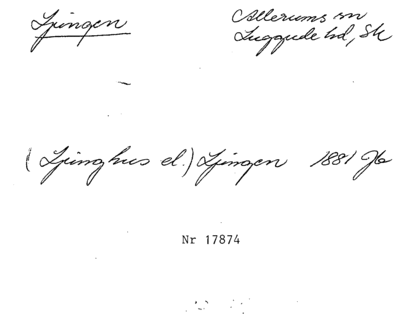 Ljungen
Allerums sn
Luggude hd, Sk
(Ljunghus el.) Ljungen 1881 Jb
Nr 17874